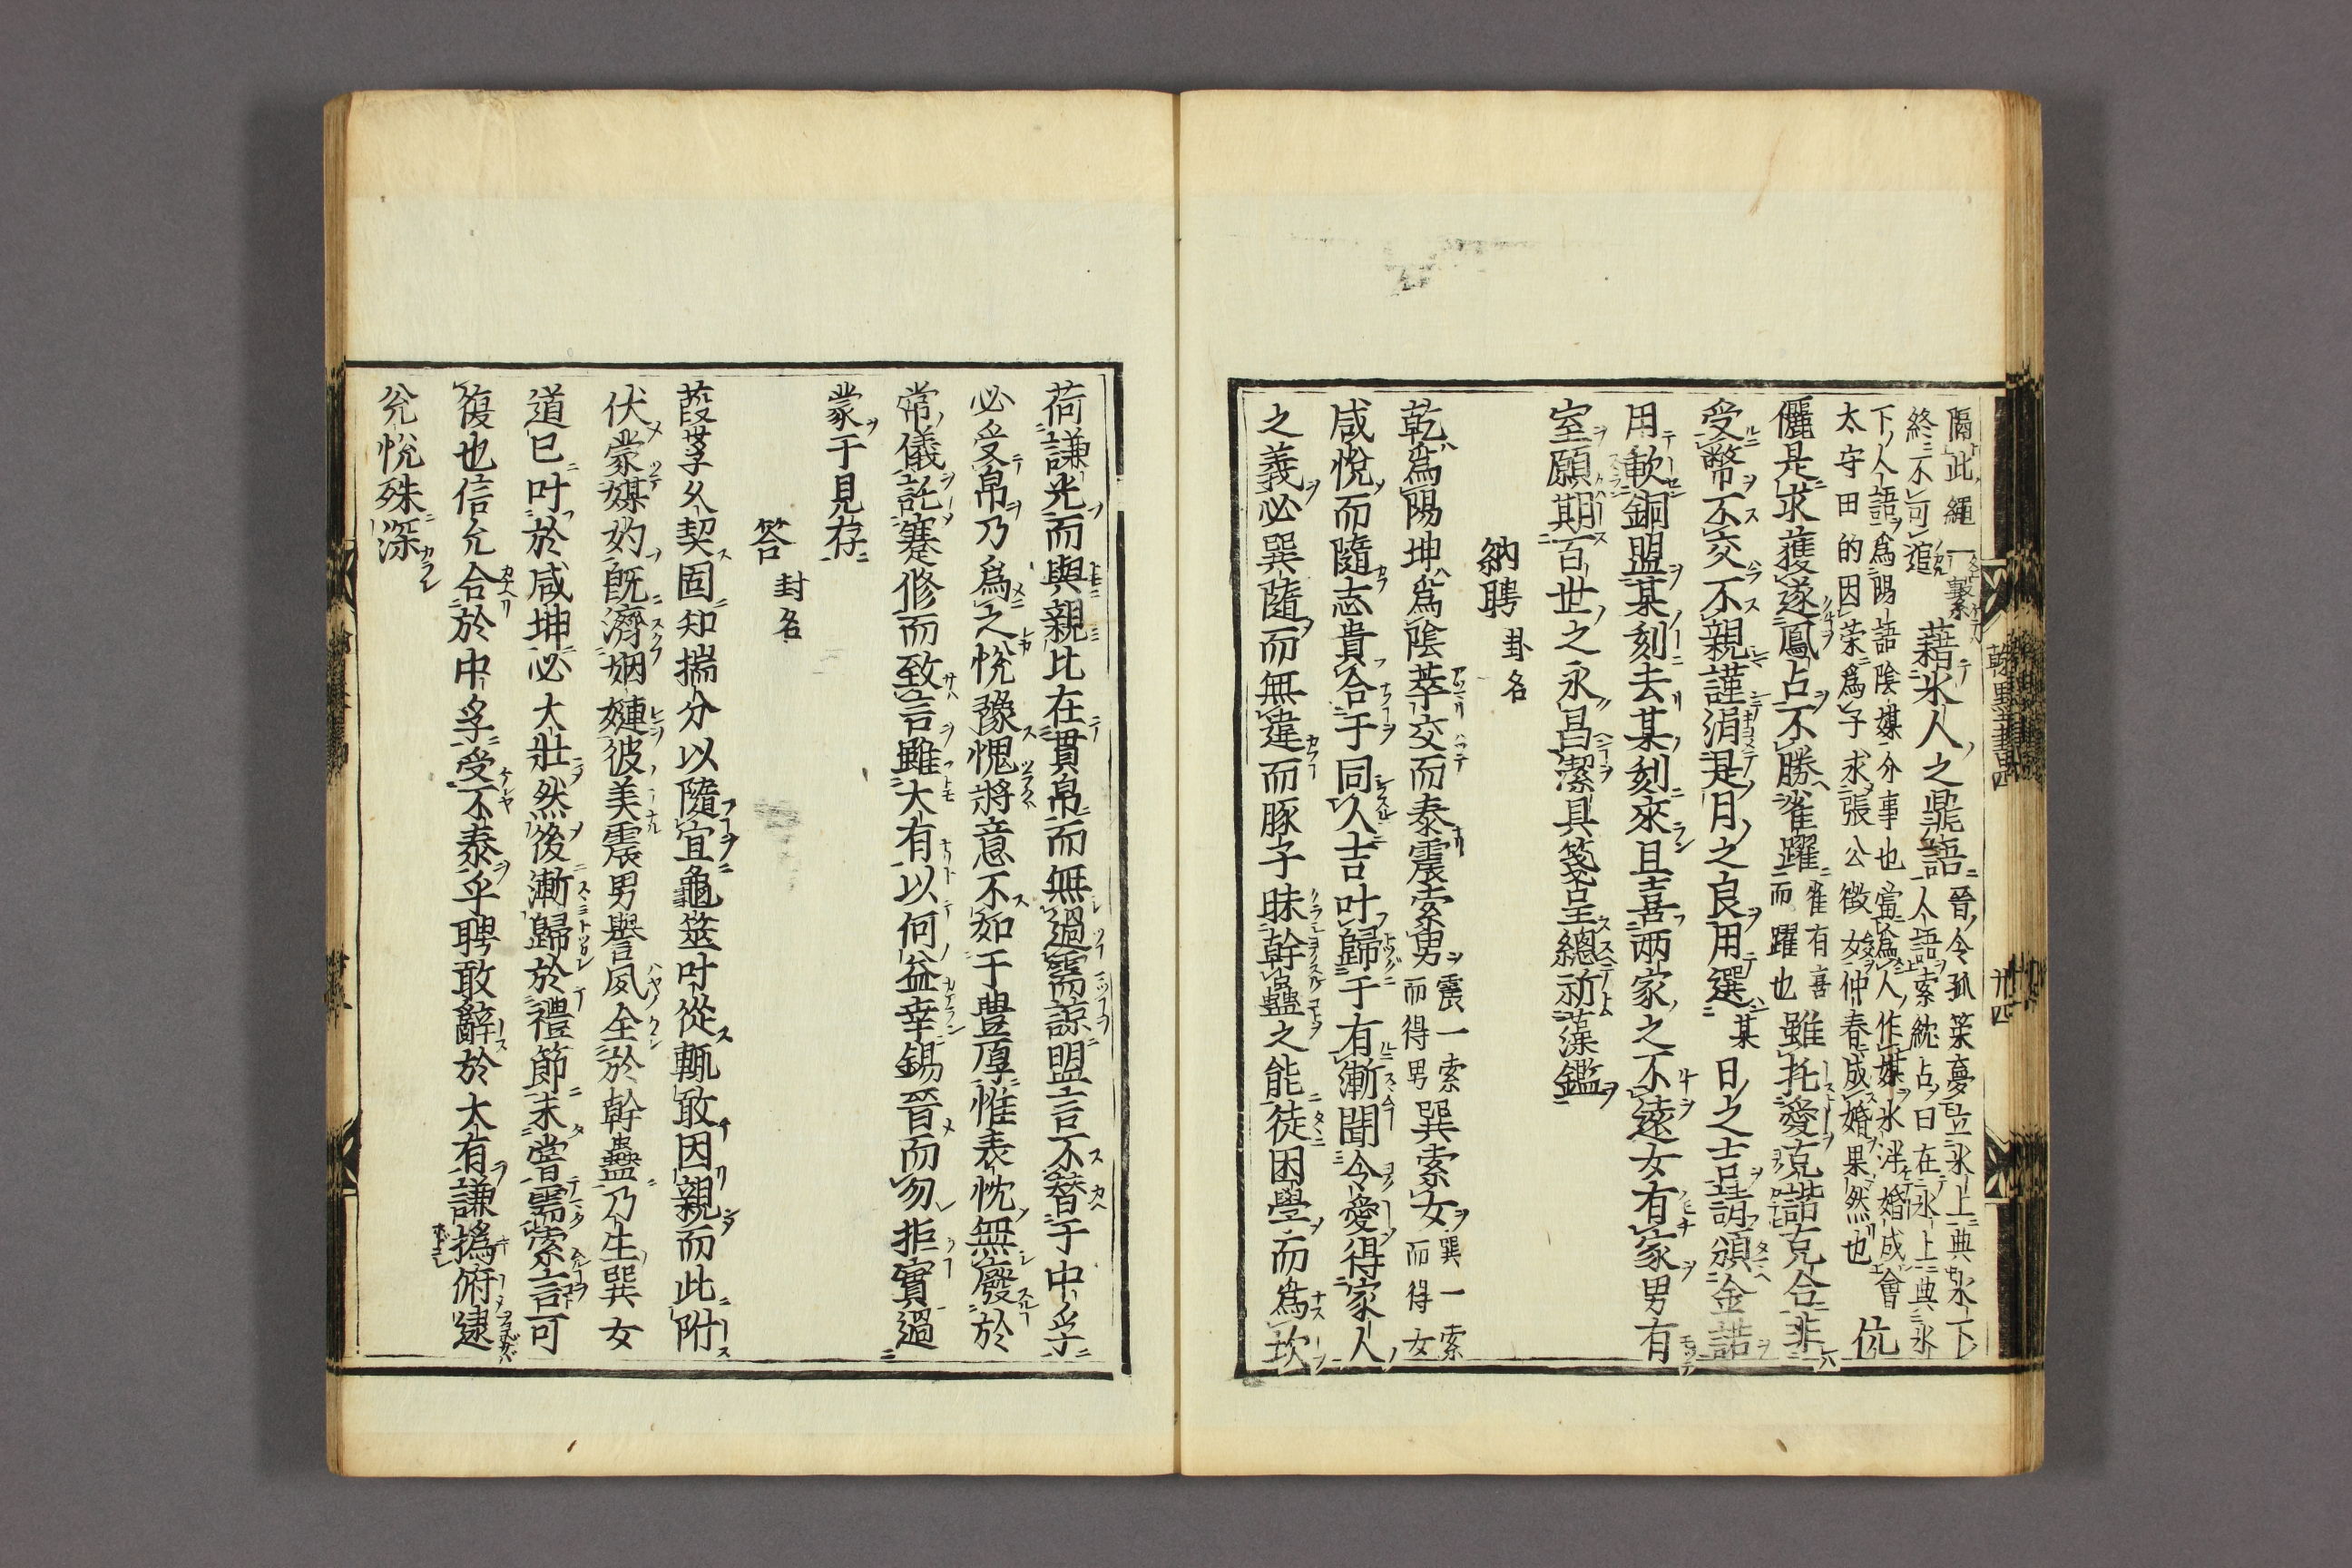 隔此繩一繫
終不可逭
藉氷人之鼎語
晉令狐策夢立氷上與氷下
人語索紞占曰在氷上與氷
下人語爲陽語陰媒介事也當爲人作媒氷泮婚成會
太守田的因荣爲子求張公徴女仲春成婚果然也
伉
儷是求獲遂鳳占不勝雀躍
雀有喜
而躍也
雖托愛克諧克合非
受幣不交不親謹涓是月之良用選某日之吉請頒金諾
用軟銅盟某刻去某刻來且喜兩家之不遠女有家男有
室願期百世之永昌潔具箋呈總祈藻鑑
納聘 卦名
乾爲陽坤爲陰萃交而泰震索男
震一索
而得男
巽索女
巽一索
而得女
咸悅而隨志貴合于同人吉叶歸于有漸聞令愛得家人
之義必巽隨而無違而豚子昧幹蠱之能徒困學而爲坎
乾集 卷四
廾四
荷謙光而與親比在貫帛而無過需諒盟言不替于中孚
必受帛乃爲之悅豫愧將意不如于豊厚惟表忱無廢於
常儀託蹇修而致言雖大有以何益幸錫晉而勿拒實過
蒙于見存
答 封名
葭莩久契固知揣分以隨宜龜筮叶從輒敢因親而此附
伏蒙媒妁旣濟姻嫿彼美震男譽夙全於幹蠱乃生巽女
道已叶於咸坤必大壯然後漸歸於禮節未嘗需索言可
復也信允合於中孚受不泰乎聘敢辭於大有謙撝俯逮
兊悅殊深